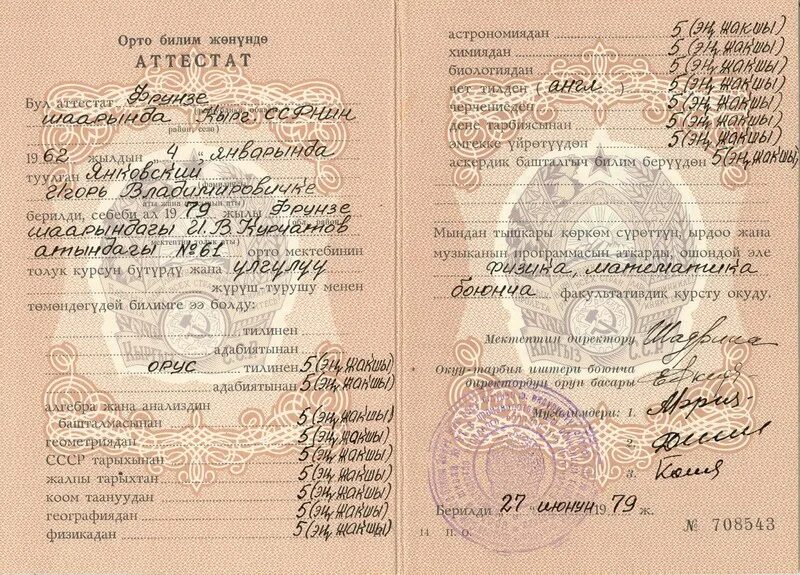 Орто билим жөнүндө
АТТЕСТАТ
Бул аттестат Фрунзе
шаарында Кырг. ССРнин
район, село)
1962 жылдын „4„ январында
туулган Янковский
Игорь Владимировичке
берилди, себеби ал 1979 жылы Фрунзе
шаарындагы И.В Курчатов
атындагы №61 орто мектебинин
толук курсун бүтүрдү жана үлгүлүү
жүрүш-турушу менен
төмөндөгүдөй билимге ээ болду:
тилинен
адабиятынан
орус тилинен 5(эң жакшы)
адабиятынан 5(эң жакшы)
алгебра жана анализдин
башталмасынан 5(эң жакшы)
геометриядан 5(эң жакшы)
СССР тарыхынан 5(эң жакшы)
жалпы тарыхтан 5(эң жакшы)
коом таануудан 5(эң жакшы)
географиядан 5(эң жакшы)
физикадан 5(эң жакшы)
астрономиядан 5(эң жакшы)
химиядан 5(эң жакшы)
биологиядан 5(эң жакшы)
чет тилден (англ.) 5(эң жакшы)
черчениеден 5(эң жакшы)
дене тарбиясынан 5(эң жакшы)
эмгекке үйрөтүүдөн 5(эң жакшы)
аскердик башталгыч билим берүүдөн 5(эң жакшы)
Мындан тышкары көркөм сүрөттүн, ырдоо жана
музыканын программасын аткарды, ошондой эле
физика, математика
боюнча факультативдик курсту окуду.
Мектептин директору
Окуу-тарбия иштери боюнча
директордун орун басары
Мугалимдери: 1.
2.
3.
Берилди 27 „ июнун 1979 ж.
14 П. О. № 708543